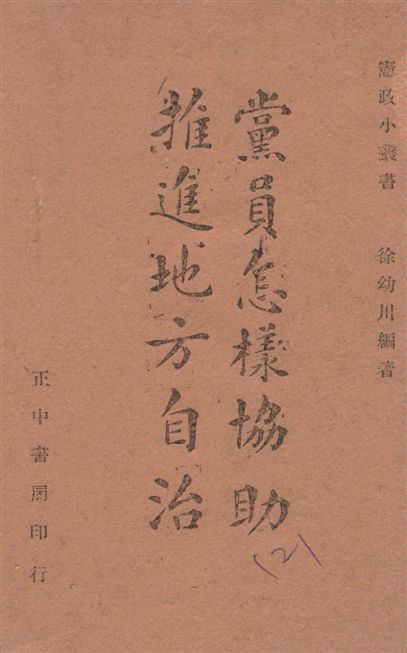 憲政小叢書　徐幼川編著
黨員怎樣協助
推進地方自治
(2)
正中書局印行